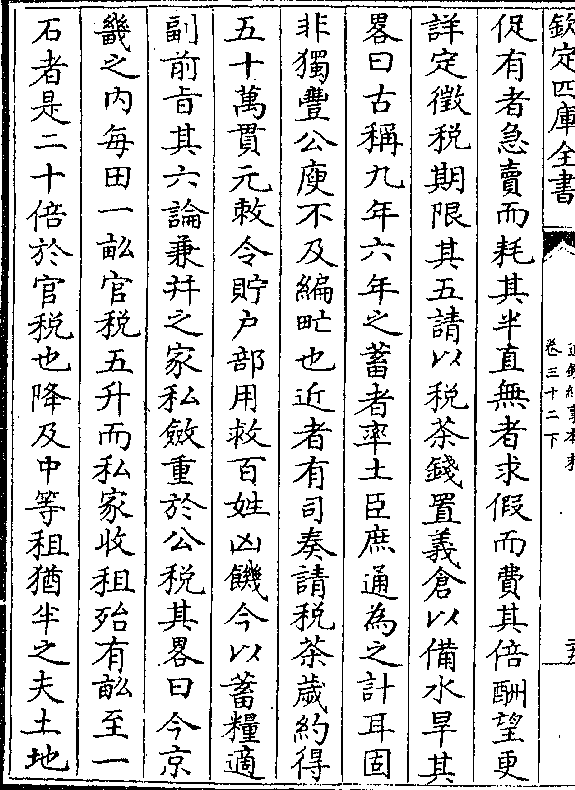 欽定四庫全書
卷三十二下
促有者急賣而耗其半直無者求假而費其倍酬望更
詳定徵税期限其五請以税茶錢置義倉以備水旱其
畧曰古稱九年六年之蓄者率土臣庶通為之計耳固
非獨豐公庾不及編甿也近者有司奏請税茶歲約得
五十萬貫元敕令貯户部用救百姓凶饑今以蓄糧適
副前㫖其六論兼并之家私斂重於公税其畧曰今京
畿之内每田一畝官税五升而私家收租殆有畝至一
石者是二十倍於官税也降及中等租猶半之夫土地